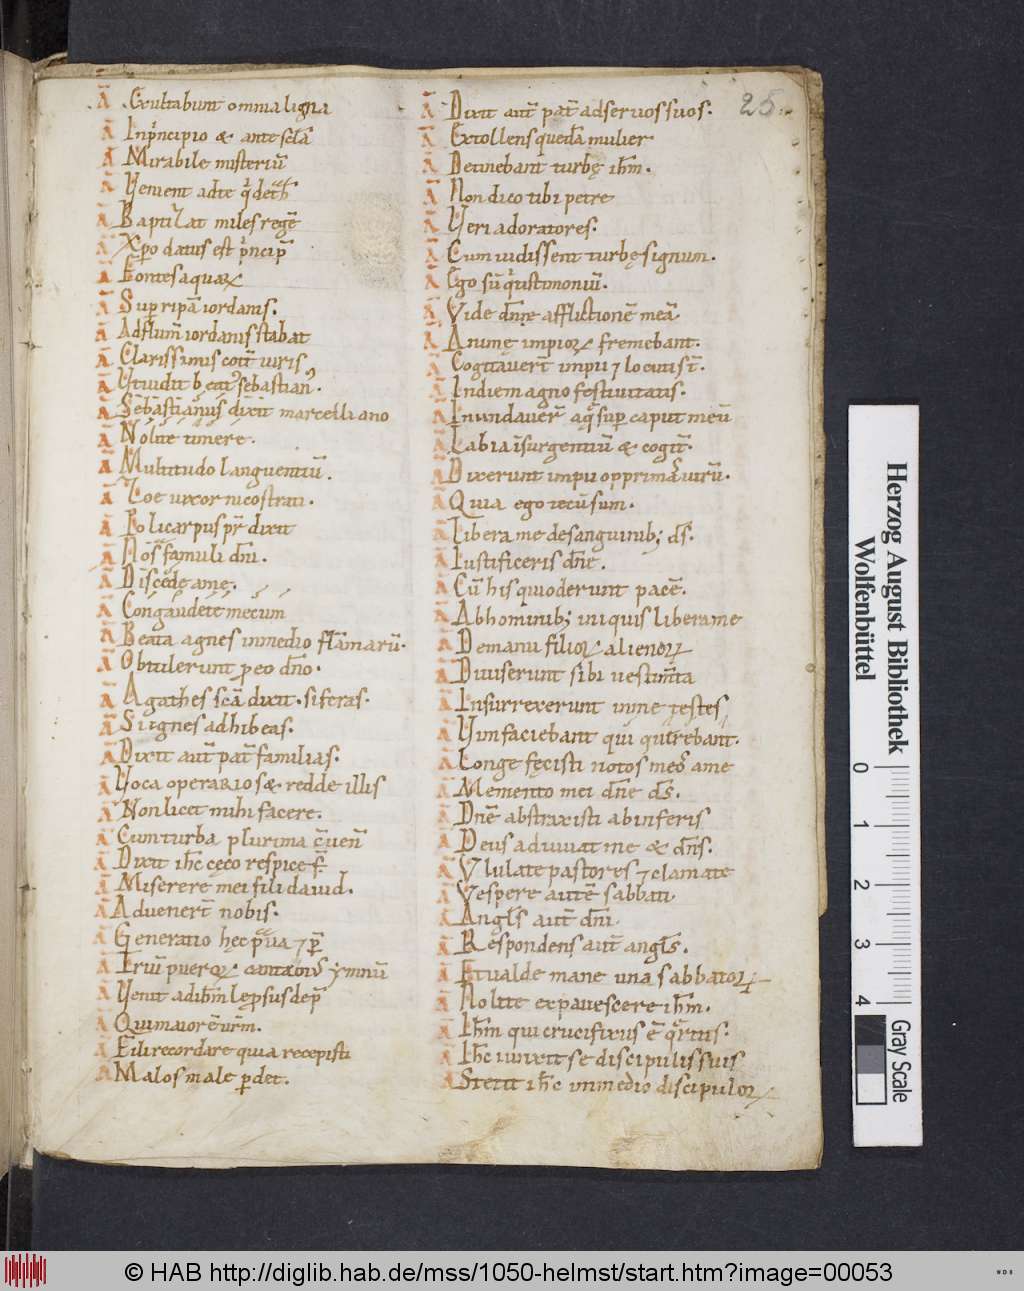 25
A̅ Exultabunt omnia ligna
A̅ Inp͛ncipio & ante scl̅a
A̅ Mirabile misteriu̅
A̅ Venient ad te
A̅ Baptizat miles rege̅
A̅ Xp̅o datus est p͛ncip̅
A̅ Fontes aquaꝝ
A̅ Sup̲ ripa̅ iordanis.
A̅ Ad flum̅ iordanis stabat
A̅ Clarissimis uiris
A̅ Vt uidit sebastian͛.
A̅ Sebastianus dixit marcelliano
A̅ Nolite timere.
A̅ Multitudo languentiu̅.
A̅ Zoe uxor nicostrati.
A̅ Policarpus pr̅ dixit
A̅ Nos famuli dn̅i.
A̅ Discede a me.
A̅ Congaudete mecum
A̅ Beata agnes in medio fla̅maru̅.
A̅ Obtulerunt p̲ eo dn̅o.
A̅ Agathes sc̅a dixit. si feras.
A̅ Si ignes adhibeas.
A̅ Dixit aut̅ pat̅ familias.
A̅ Voca operarios & redde illis
A̅ Non licet mihi facere.
A̅ Cum turba plurima c̅uen̅
A̅ Dixit ih̅c cęco respice
A̅ Miserere mei fili dauid.
A̅ Aduenert̅ nobis.
A̅ Generatio hęc praua ⁊ p̲
A̅ Triu̅ pueroꝝ ymnu̅
A̅ Venit ad ih̅m
A̅ Qui maior e̅ ur̅m.
A̅ Fili recordare quia recepisti
A̅ Malos male p̲det.
A̅ Dixit aut̅ pat̅ ad seruos suos.
A̅ Extollens queda̅ mulier
A̅ Detinebant turbę ih̅m.
A̅ Non dico tibi petre
A̅ Veri adoratores.
A̅ Cum uidissent turbę signum.
A̅ Ego su̅ qui testimoniu̅.
A̅ Vide dn̅ne afflictione̅ mea̅
A̅ Animę impioꝝ fremebant.
A̅ Cogitauert̅ impii ⁊ locuti st̅.
A̅ In die magno festiuitatis.
A̅ Inundauer̅ aq̅ sup̲ caput meu̅
A̅ Labia i̅surgentiu̅ & cogit̅.
A̅ Dixerunt impii opprimam͛ uiru̅.
A̅ Quia ego tecu̅ sum.
A̅ Libera me de sanguinib; ds̅.
A̅ Iustificeris dn̅e.
A̅ Cu̅ his qui oderunt pace̅.
A̅ Ab hominib; iniquis libera me
A̅ De manu filioꝝ alienoꝝ
A̅ Diuiserunt sibi uestim̅ta
A̅ Insurrexerunt in me testes
A̅ Vim faciebant qui querebant.
A̅ Longe fęcisti notos meos a me
A̅ Memento mei dn̅e ds̅.
A̅ Dn̅e abstraxisti ab inferis
A̅ Deus adiuuat me & dn̅s.
A̅ Vlulate pastores ⁊ clamate
A̅ Vespere aute̅ sabbati
A̅ Angl̅s aut̅ dn̅i.
A̅ Respondens aut̅ angl̅s.
A̅ Et ualde mane una sabbatoꝝ
A̅ Nolite expauescere ih̅m.
A̅ Ih̅m qui crucifixus e̅ q͛ritis.
A̅ Ih̅c iunxit se discipulis suis
A̅ Stetit ih̅c in medio discipuloꝝ
Herzog August Bibliothek
Wolfenbüttel
0 1 2 3 4
Gray Scale
© HAB http://diglib.hab.de/mss/1050-helmst/start.htm?image=00053